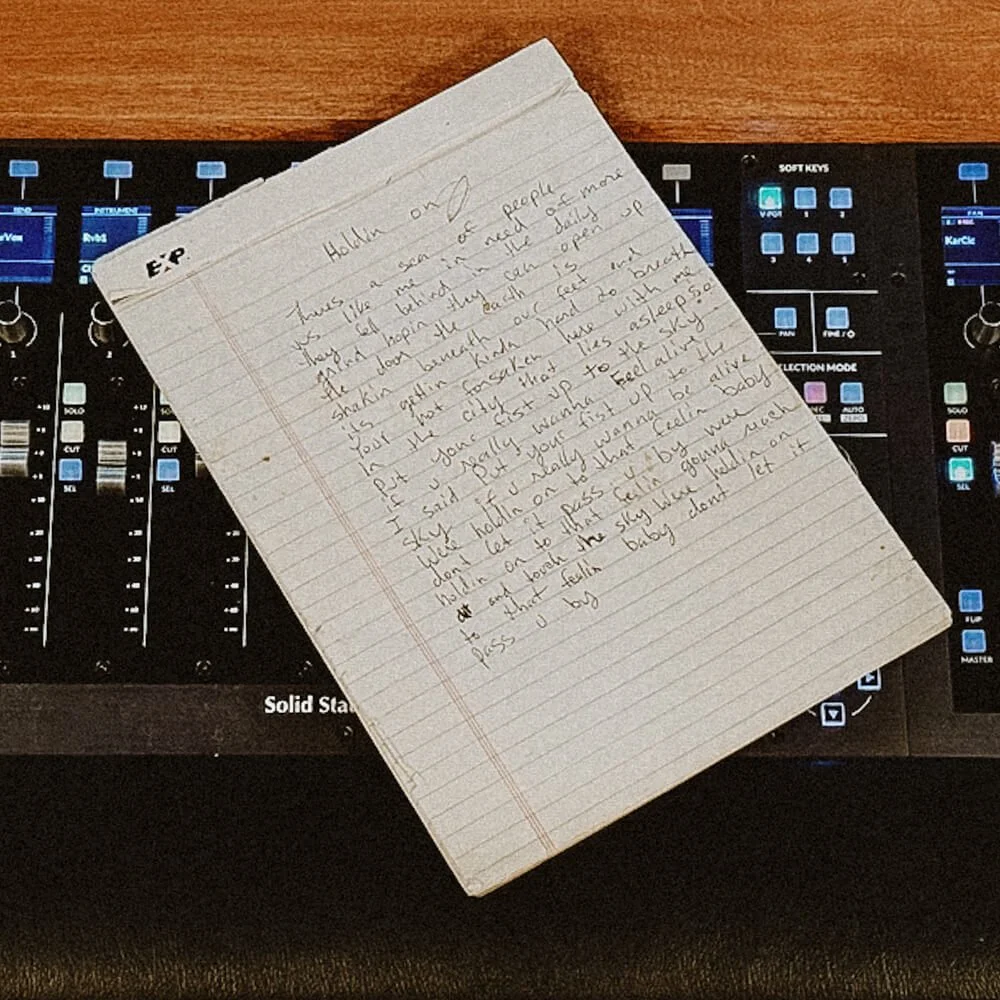 SOFT KEYS
SEND
INSTRUMENT
PAN
Rvb1
KarClc
V-POT
1
2
3
4
5
EXP
Holdin on
Thures a sea of people
jus like me in need of more
they fell behind in the daily
grind hopin they can open up
the door the earth is
shakin beneath our feet and
its gettin kinda hard to breath
Your not forsaken here with me
In the city that lies asleep So
Put your fist up to the sky
if u really wanna feel alive
I said Put your fist up to the
sky if u really wanna be alive
Were holdin on to that feelin baby
dont let it pass u by were
holdin on to that feelin gonna reach
and touch the sky Were holdin on
to that feelin baby dont let it
pass u by
1
2
PAN
FINE / O
SELECTION MODE
REC
AUTO
ZERO
SOLO
CUT
SEL
SOLO
CUT
SEL
SOLO
CUT
SEL
FLIP
MASTER
Solid Sta